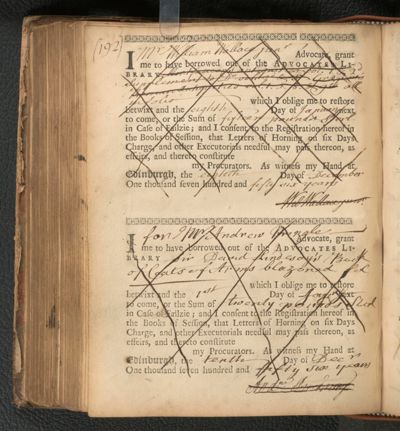 (192)
I Mr William Wallace junr Advocate, grant
me to have borrowed out of the ADVOCATES LI-
BRARY
which I oblige me to restore
betwixt and the eighth Day of next
to come, or the Sum of pounds
in Case of Failzie; and I consent to the Registration hereof in
the Books of Session, that Letters of Horning on six Days
Charge, and other Executorials needful may pass thereon, as
effeirs, and thereto constitute
my Procurators. As witness my Hand at
Edinburgh, the Day of December
One thousand seven hundred and fifty six years
Wallace junr
I for Mr Andrew Pringle Advocate, grant
me to have borrowed out of the ADVOCATES LI-
BRARY Sir David Lindsay's Book
of Coats of Arms blazoned
which I oblige me to restore
betwixt and the 1st Day of next
to come, or the Sum of twenty
in Case of Failzie; and I consent to the Registration hereof in
the Books of Session, that Letters of Horning on six Days
Charge, and other Executorials needful may pass thereon, as
effeirs, and thereto constitute
my Procurators. As witness my Hand at
Edinburgh, the tenth Day of Decr
One thousand seven hundred and fifty six years